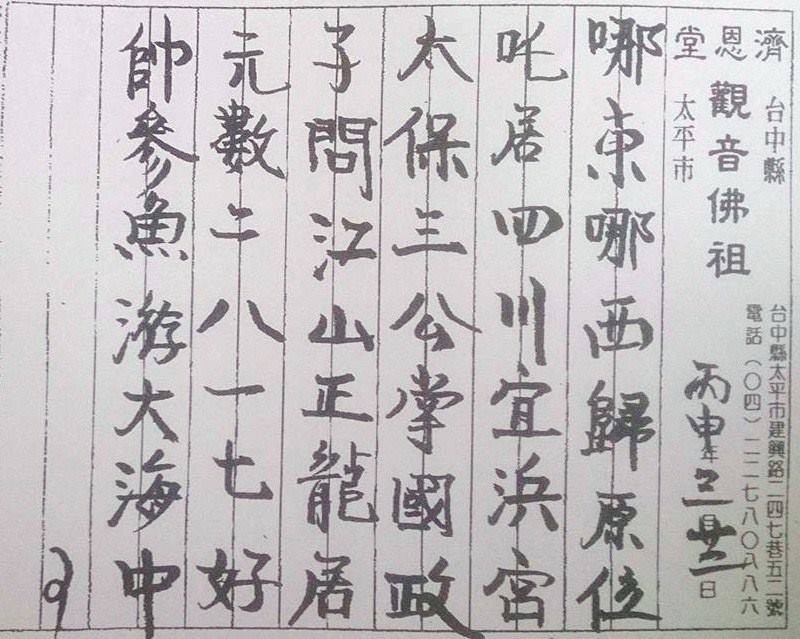 濟恩堂
台中縣
太平市
觀音佛祖
台中縣太平市建興路二四七巷五二號
電話（〇四）二二七八〇八八六
丙申年 月廿二日
哪東哪西歸原位
吒居四川宜浜宮
太保三公掌國政
子問江山正龍居
元數二八一七好
帥參魚游大海中